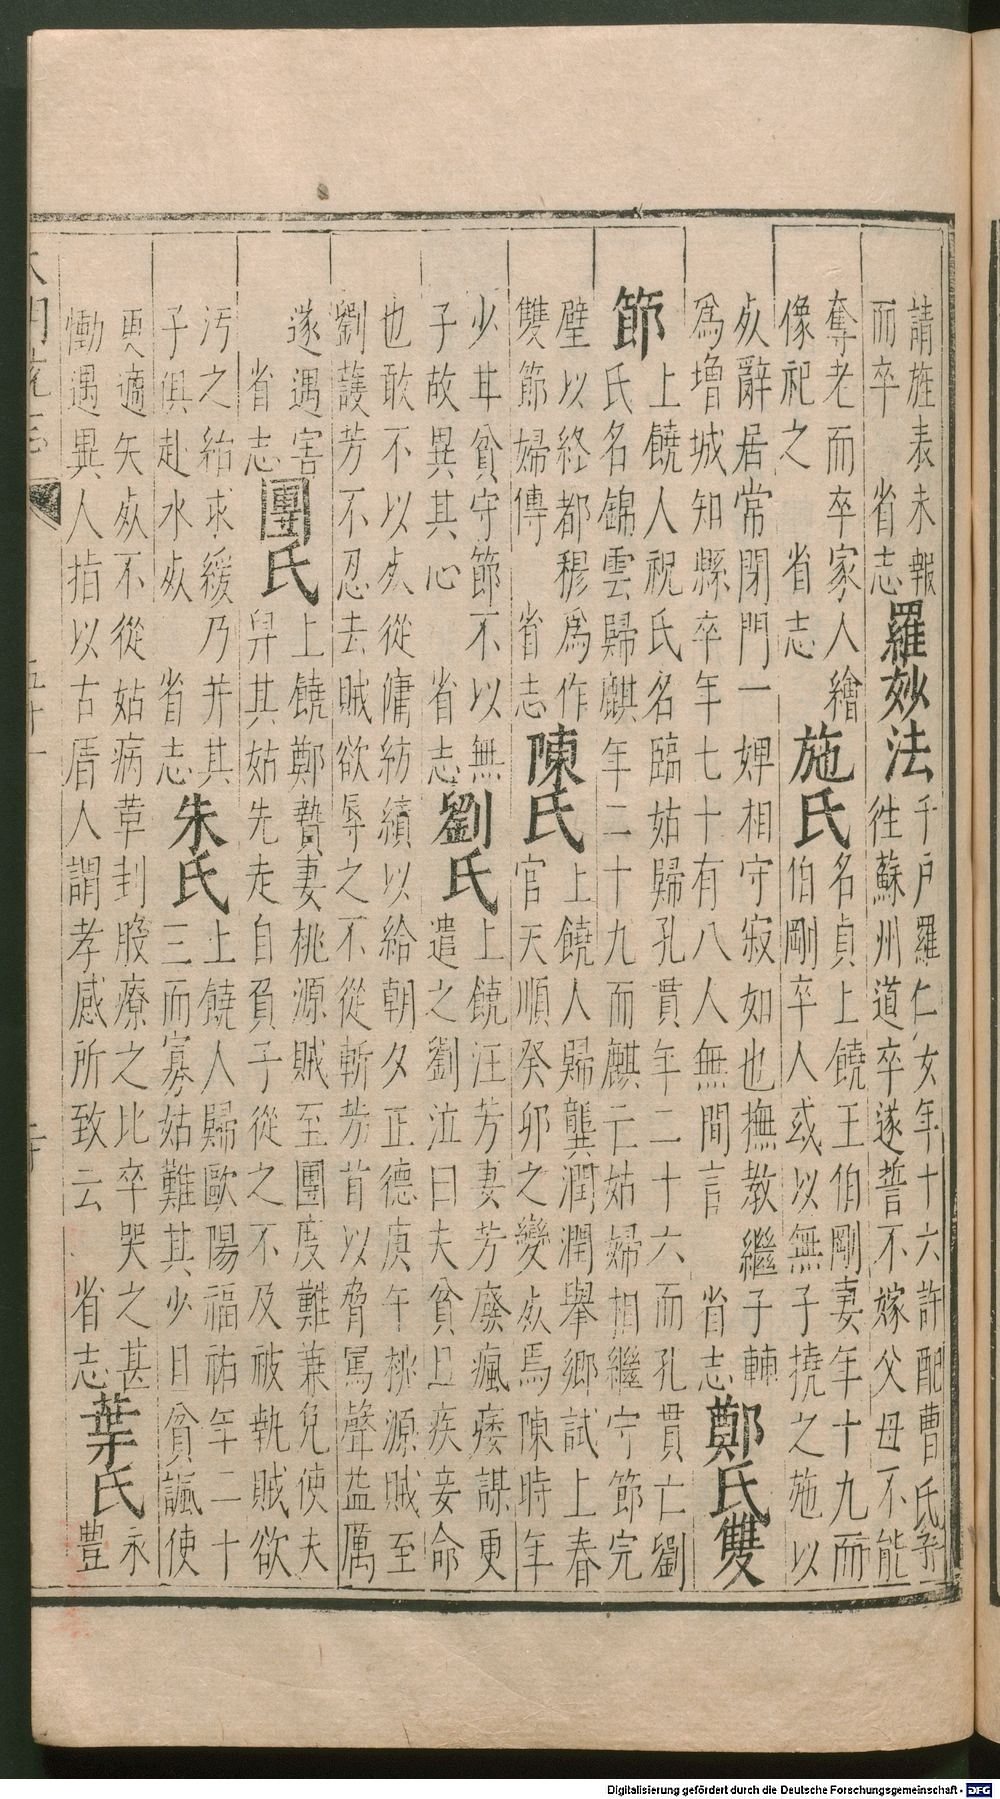 請旌表未報
而卒　省志
羅妙法
千戶羅仁女年十六許配曹氏子
往蘇州道卒遂誓不嫁父母不能
奪老而卒家人繪
像祀之　省志
施氏
名貞上饒王伯剛妻年十九而
伯剛卒人或以無子撓之施以
死辭居常閉門一婢相守寂如也撫教繼子
為增城知縣卒年七十有八人無間言　省志
鄭氏雙
節
上饒人祝氏名臨姑歸孔貫年二十六而孔貫亡劉
氏名錦雲歸麒年二十九而麒亡姑婦相繼守節完
壁以終都穆為作
雙節婦傳　省志
陳氏
上饒人歸龔潤潤舉鄉試上春
官天順癸卯之變死焉陳時年
少甘貧守節不以無
子故異其心　省志
劉氏
上饒汪芳妻芳廢瘋痿謀更
遣之劉泣曰夫貧且疾妾命
也敢不以死從傭紡績以給朝夕正德庚午桃源賊至
劉護芳不忍去賊欲辱之不從斬芳首以脅罵聲益厲
遂遇害
省志
團氏
上饒鄭贄妻桃源賊至團度難兼免使夫
舁其姑先走自負子從之不及被執賊欲
汚之紿求緩乃并其
子俱赴水死　省志
朱氏
上饒人歸歐陽福祐年二十
三而寡姑難其少且貧諷使
更適矢死不從姑病革刲股療之比卒哭之甚
慟遇異人指以古盾人謂孝感所致云　省志
葉氏
永
豊
Digitalisierung gefördert durch die Deutsche Forschungsgemeinschaft - DFG